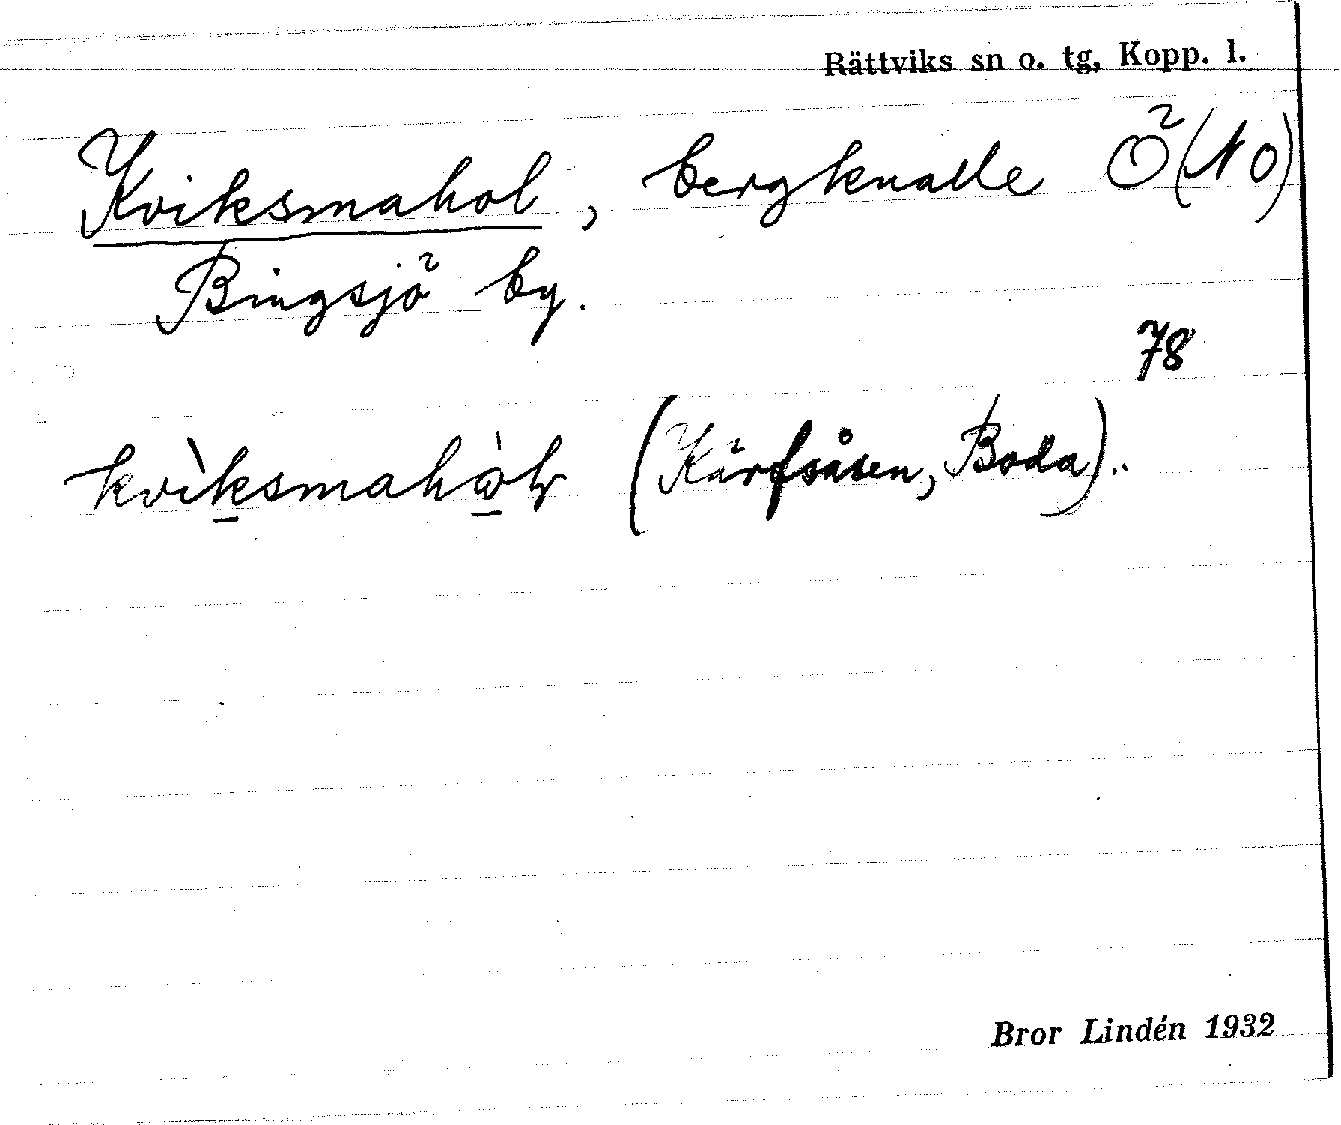 Rättviks sn o. tg, Kopp. l.
Kviksmahol, bergknalle Ö (NO)
Bingsjö by.
78
(Kärfsåsen, Boda)..
Bror Lindén 1932